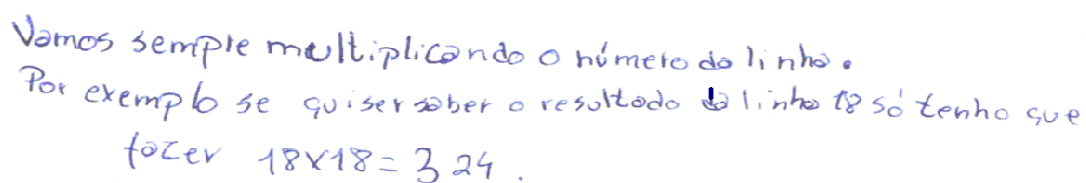 Vamos sempre multiplicando o número da linha.
Por exemplo se quiser saber o resultado da linha 18 só tenho que
fazer 18x18=324.